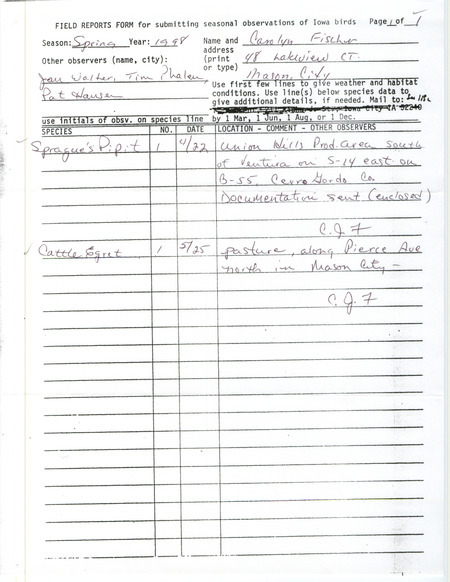 FIELD REPORTS FORM for submitting seasonal observations of Iowa birds Page 1 of 1
Season: Spring Year: 1998 Name and Carolyn Fischer
address
Other observers (name, city): (print 48 Lakeview CT.
or type) Mason City
Jan Walter, Tim Phalen,
Pat Hansen
Use first few lines to give weather and habitat
conditions. Use line(s) below species data to
give additional details, if needed. Mail to:
Iowa City IA 52240
use initials of obsv. on species line by 1 Mar, 1 Jun, 1 Aug, or 1 Dec.
SPECIES NO. DATE LOCATION - COMMENT - OTHER OBSERVERS
Sprague's Pipit 1 4/22 Union Hills Prod. Area south
of Ventura on S-14 east on
B-55, Cerro Gordo Co.
Documentation sent (enclosed)
C.J.F
Cattle Egret 1 5/25 pasture, along Pierce Ave
north in Mason City -
C.J.F